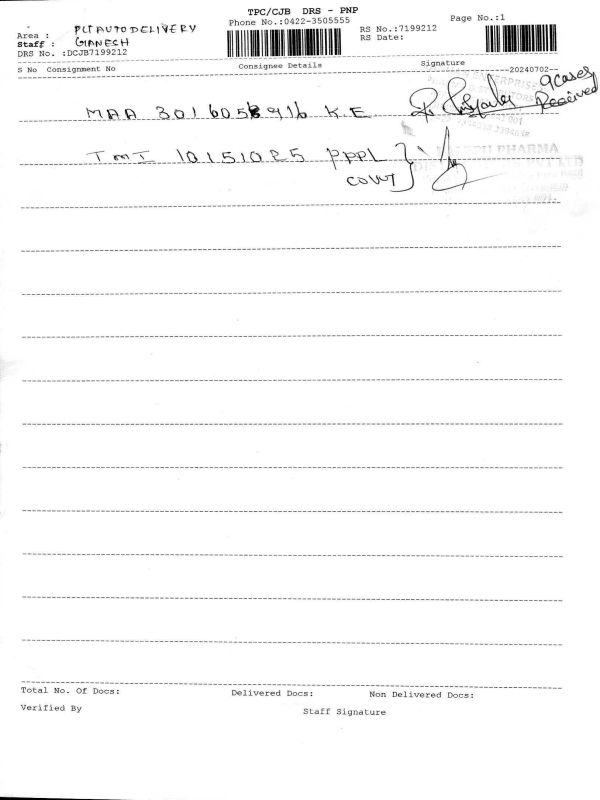 TPC/CJB DRS - PNP
Phone No.:0422-3505555
Page No.:1
Area : PLT AUTO DELIVERY
Staff : GANESH
DRS No. :DCJB7199212
RS No.:7199212
RS Date:
S No Consignment No Consignee Details Signature 20240702
9 cases
Received
MAA 301605 916 K.E
TMI 10151025 PPPL
COVT
PHARMA
PVT LTD
Total No. Of Docs: Delivered Docs: Non Delivered Docs:
Verified By Staff Signature